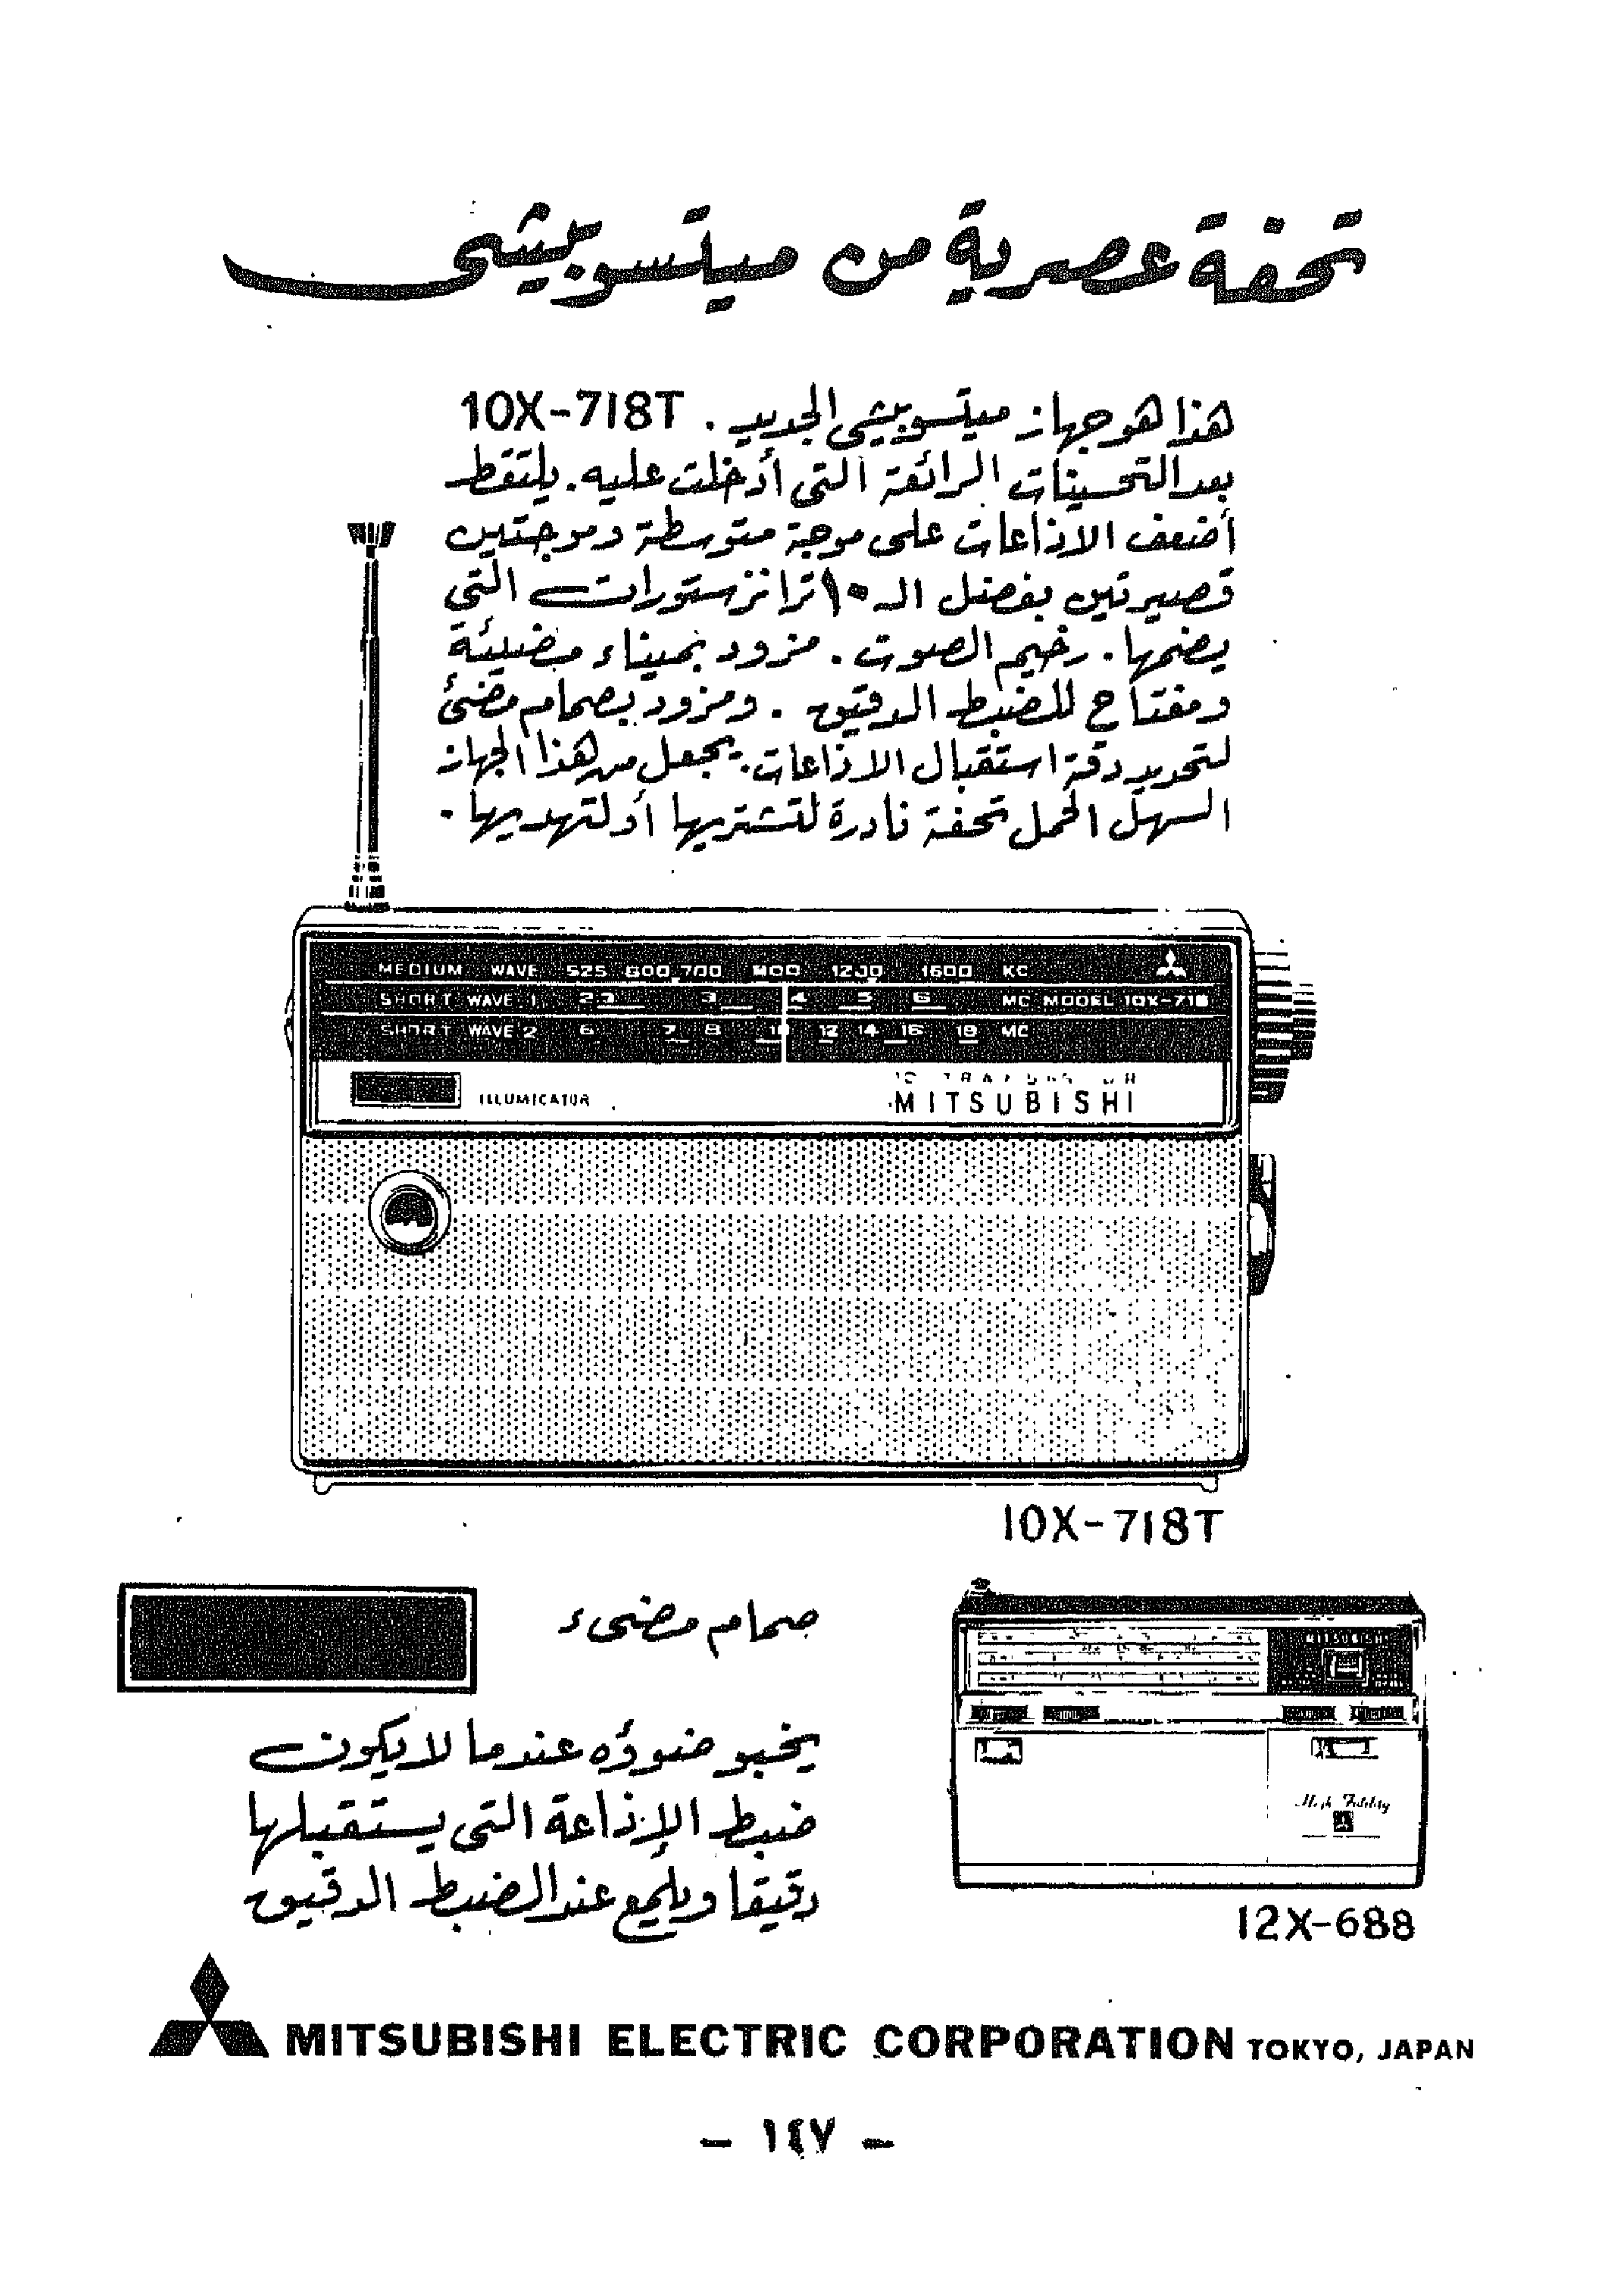 تحفة عصرية من ميتسوبيشى
هذا هو جهاز ميتسوبيشى الجديد . 10X-718T
بعد التحسينات الرائعة التى أدخلت عليه . يلتقط
أضعف الاذاعات على موجة متوسطة وموجتين
قصيرتين بفضل الـ ١٠ ترانزستورات التى
يضمها . رخيم الصوت . مزود بميناء مضيئة
ومفتاح للضبط الدقيق . ومزود بصمام مضئ
لتحديد دقة استقبال الاذاعات . يجعل من هذا الجهاز
السهل الحمل تحفة نادرة لتشتريها أو لتهديها .
MEDIUM WAVE 525 600 700 1200 1600 KC
SHORT WAVE 1 3 4 5 6 MC MODEL
SHORT WAVE 2 6 7 8 10 12 14 16 18 MC
ILLUMICATOR
MITSUBISHI
10X-718T
صمام مضىء
يخبو ضوؤه عندما لا يكون
ضبط الإذاعة التى يستقبلها
دقيقا ويلمع عند الضبط الدقيق
MITSUBISHI
High Fidelity
12X-688
MITSUBISHI ELECTRIC CORPORATION TOKYO, JAPAN
— ١٤٧ —